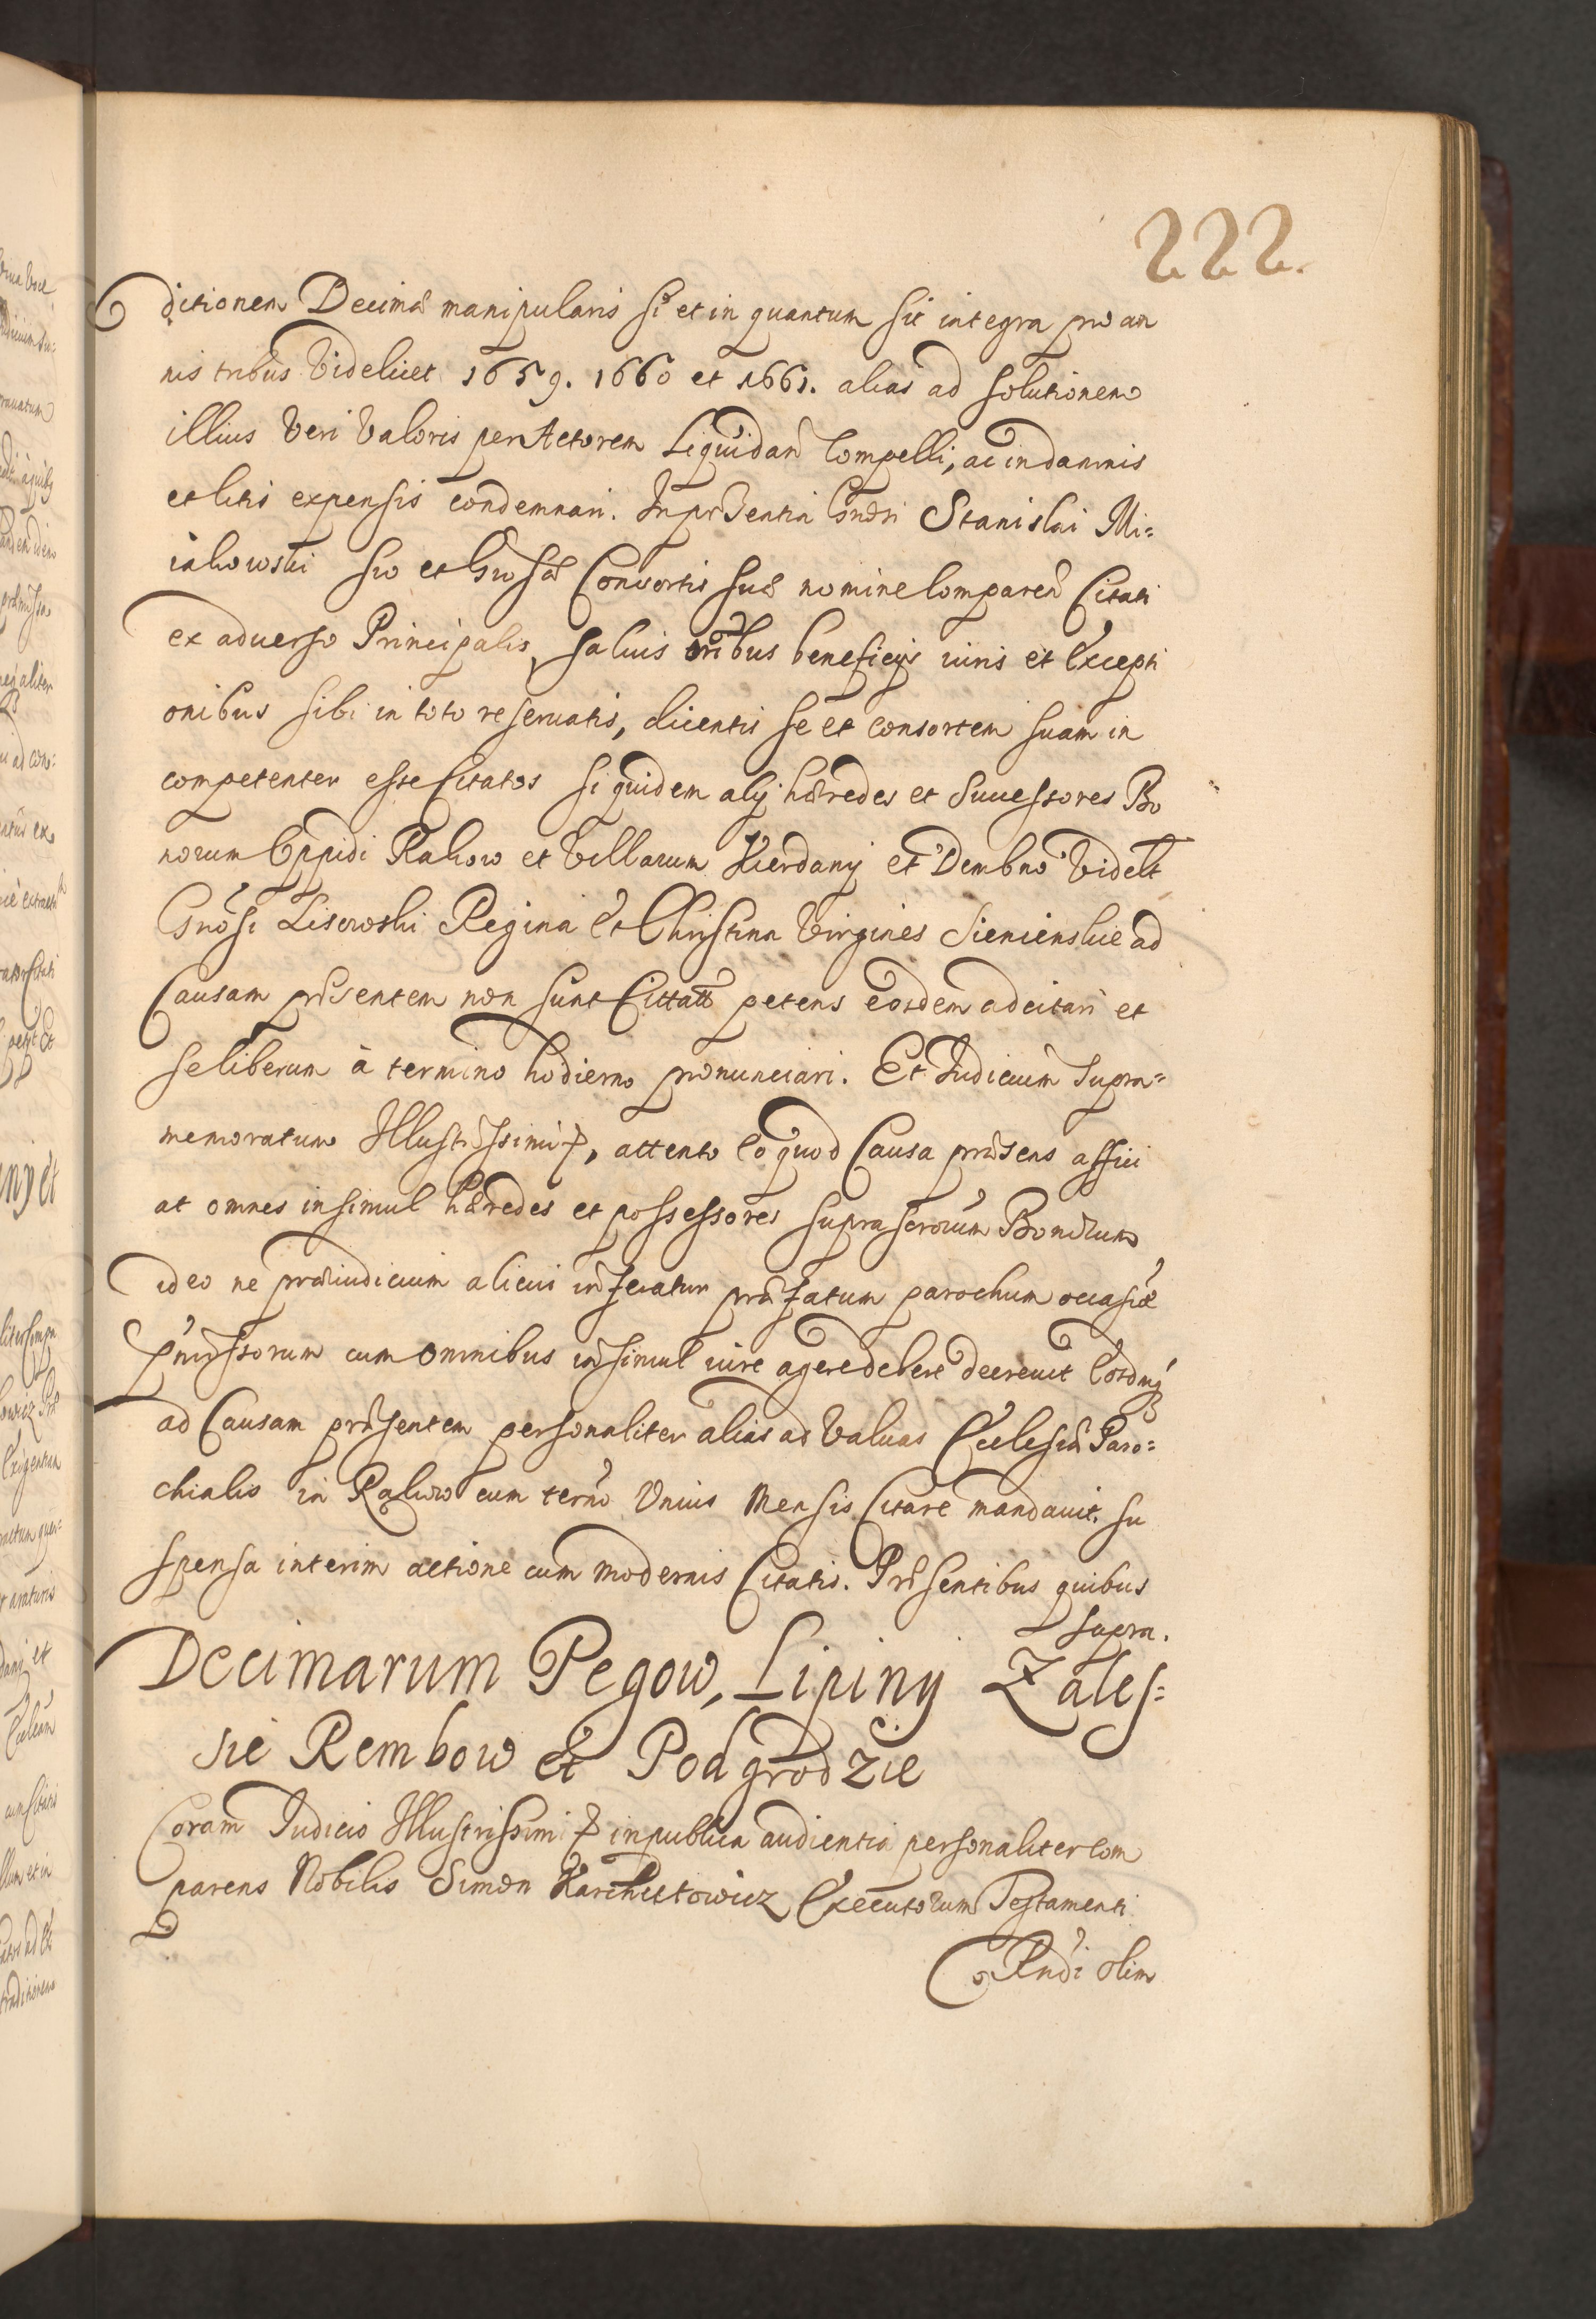 222.
ditionem Decimæ manipularis si et in quantum sit integra pro an
nis tribus Videlicet 1659. 1660 et 1661. alias ad solutionem
illius Veri Valoris per Actorem Liquidañ Compelli, ac in damnis
et litis expensis condemnari. In præsentia Gnosi Stanislai Mi=
iakowski suo et Gnosæ Consortis suæ nomine Comparen̄ Citati
ex aduerso Principalis, saluis oībus beneficijs iuris et Excepti
onibus sibi in toto reseruatis, dicentis se et consortem suam in
competenter esse Citatos siquidem alij hæredes et Successores Bo
norum Oppidi Rakow et Villarum Kierdany et Dembno Videlt
Gnosi Lisowski Regina et Christina Virgines Sienienskie ad
Causam præsentem non sunt Citati petens eosdem adcitari et
se liberum à termino hodierno pronunciari. Et Iudicium supra=
memoratum Illustrissimi, attento eo quod Causa præsens affici
at omnes insimul hæredes et possessores suprascrorum Bonorum
ideo ne præiudicium alicui inferatur præfatum parochum occasiõe
pmissorum cum omnibus insimul iure agere debere decreuit Eosdemq
ad Causam præsentem personaliter alias ad Valuas Ecclesiæ Paro=
chialis in Rakow cum termō Vnius Mensis Citare mandauit. su
spensa interim actione cum modernis Citatis. Præsentibus quibus
supra.
Decimarum Pegow, Lipiny Zales=
sie Rembow et Podgrodzie
Coram Iudicio Illustrissimi in publica audientia personaliter Com
parens Nobilis Simon Karchettowicz Executorum Testamenti
Rndi olim